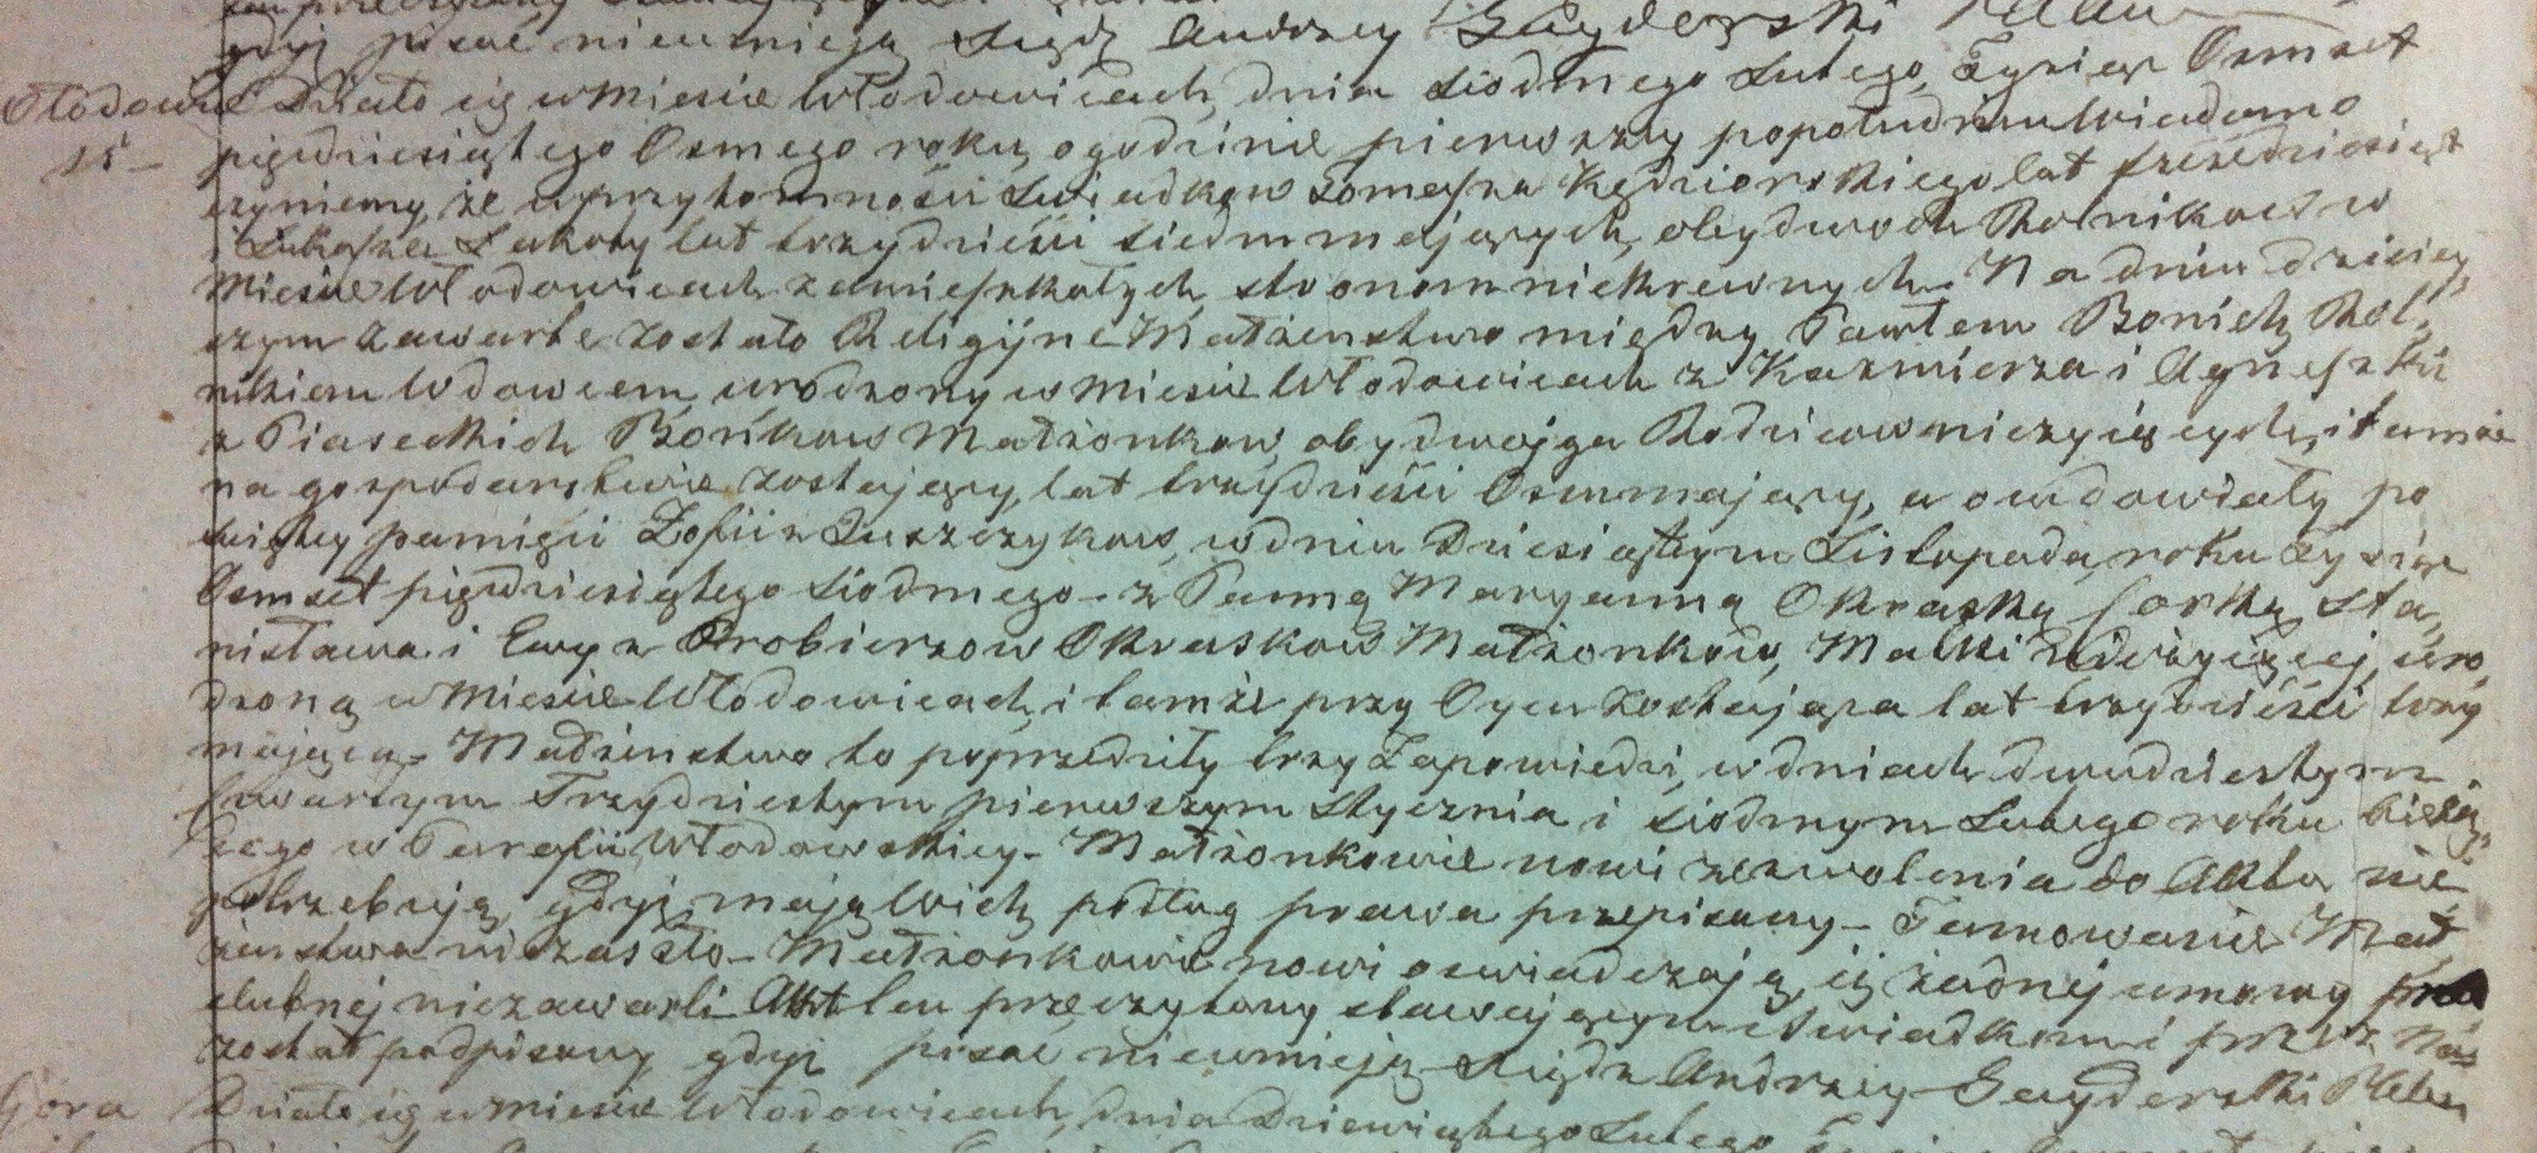 gdyż pisać nieumieją Xiądz Andrzey Gayderski
Włodowice Działo się w Mieście Włodowicach, dnia siodmego Lutego, Tysiąc Osmset
15 - pięćdziesiątego Osmego roku, o godzinie pierwszey popołudniu Wiadomo
czyniemy, że w przytomności Swiadków Tomasza Kędziorskiego lat sześćdziesiąt
i Łukasza Sikory lat trzydzieści siedm mających, obydwoch Rolników w
Mieście Włodowicach zamieszkałych, stronom niekrewnych. Na dniu dzisiey,
szym zawarte zostało Religijne Małżenstwo między Pawłem Bonich Rol,
nikiem Wdowcem, urodzony w Mieście Włodowicach z Kazmierza i Agneszki
z Piaseckich Bońkow Małżonkow, obydwojga Rodziców nieżyiących, i tamże
na gospodarstwie zostający, lat trzydzieści Osm mający, a owdowiały po
świętey pamięci Zofii z Juszczykow, w dniu Dziesiątym Listopada, roku Tysiąc
Osmset pięćdziesiątego siodmego - z Panną Maryanną Okraską Corką Sta,
nisława i Ewy z Probierzow Okraskow Małżonków, Matki nieżyiącej, uro,
dzoną w Mieście Włodowicach, i tamże przy Oycu zostająca lat trzydzieści trzy
mająca - Małżenstwo to poprzedziły trzy Zapowiedzi, w dniach dwudziestym
czwartym Trzydziestym pierwszym Stycznia i siodmym Lutego roku bieżą,
cego w Parafii Włodowskiey - Małżonkowie nowi zezwolenia do Aktu nie
potrzebują, gdyż mają Wiek podług prawa przepisany - Tamowanie Mał,
żenstwa niezaszło - Małżonkowie nowi oswiadczają, iż żadnej umowy przed
slubnej niezawarli Akt ten przeczytany stawającym i Swiadkom i przez Nas
został podpisany gdyż pisać nieumieją Xiądz Andrzey Gayderski Pleban
Gora Działo się w Mieście Włodowicach, dnia Dziewiątego Lutego